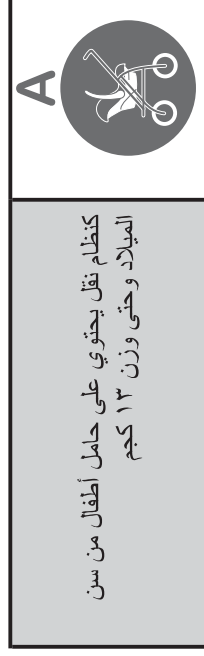 A
كنظام نقل يحتوي على حامل أطفال من سن
الميلاد وحتى وزن ١٣ كجم